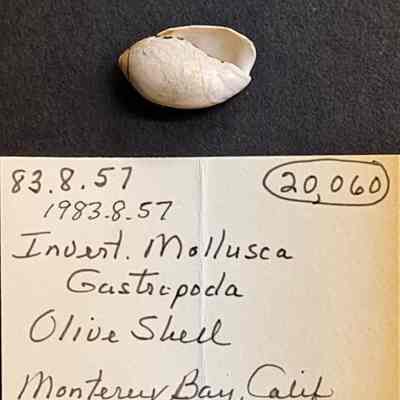 83.8.57
20,060
1983.8.57
Invert. Mollusca
Gastropoda
Olive Shell
Monterey Bay, Calif